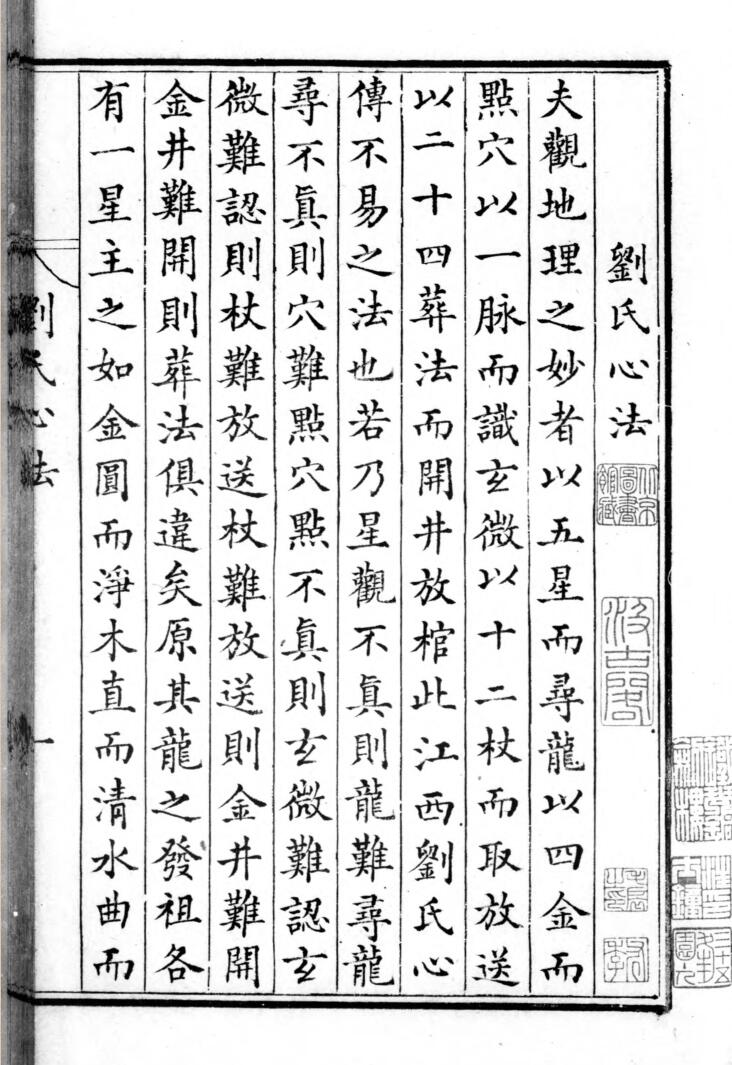 劉氏心法
夫觀地理之妙者以五星而尋龍以四金而
點穴以一脉而識玄微以十二杖而取放送
以二十四葬法而開井放棺此江西劉氏心
傳不易之法也若乃星觀不眞則龍難尋龍
尋不眞則穴難點穴點不眞則玄微難認玄
微難認則杖難放送杖難放送則金井難開
金井難開則葬法俱違矣原其龍之發祖各
有一星主之如金圓而淨木直而清水曲而
劉氏心法
一
北京圖書館藏
汲古閣